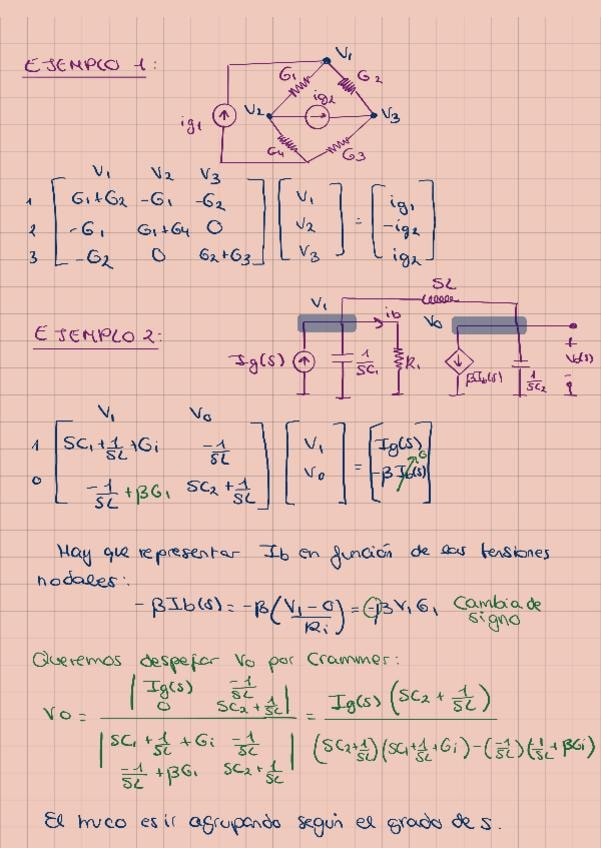 EJEMPLO 1:
V₁
G₁ G₂
ig₂
ig₁ V₂ V₃
G₄ G₃
V₁ V₂ V₃
1 G₁+G₂ -G₁ -G₂ V₁ ig₁
2 -G₁ G₁+G₄ 0 V₂ = -ig₂
3 -G₂ 0 G₂+G₃ V₃ ig₂
SL
V₁ ib V₀
EJEMPLO 2:
Ig(s) 1/SC₁ R₁ βIb(s) 1/SC₂ + V₀(s) -
V₁ V₀
1 SC₁+1/SL+Gi -1/SL V₁ Ig(s)
0 -1/SL+βG₁ SC₂+1/SL V₀ = -βIb(s) 0
Hay que representar Ib en función de las tensiones
nodales:
-βIb(s) = -β(V₁-0/Ri) = -βV₁G₁ Cambia de
signo
Queremos despejar V₀ por Crammer:
V₀ = |Ig(s) -1/SL 0 SC₂+1/SL| / |SC₁+1/SL+Gi -1/SL -1/SL+βG₁ SC₂+1/SL| = Ig(s)(SC₂+1/SL) / (SC₂+1/SL)(SC₁+1/SL+Gi)-(-1/SL)(-1/SL+βGi)
El truco es ir agrupando según el grado de s.